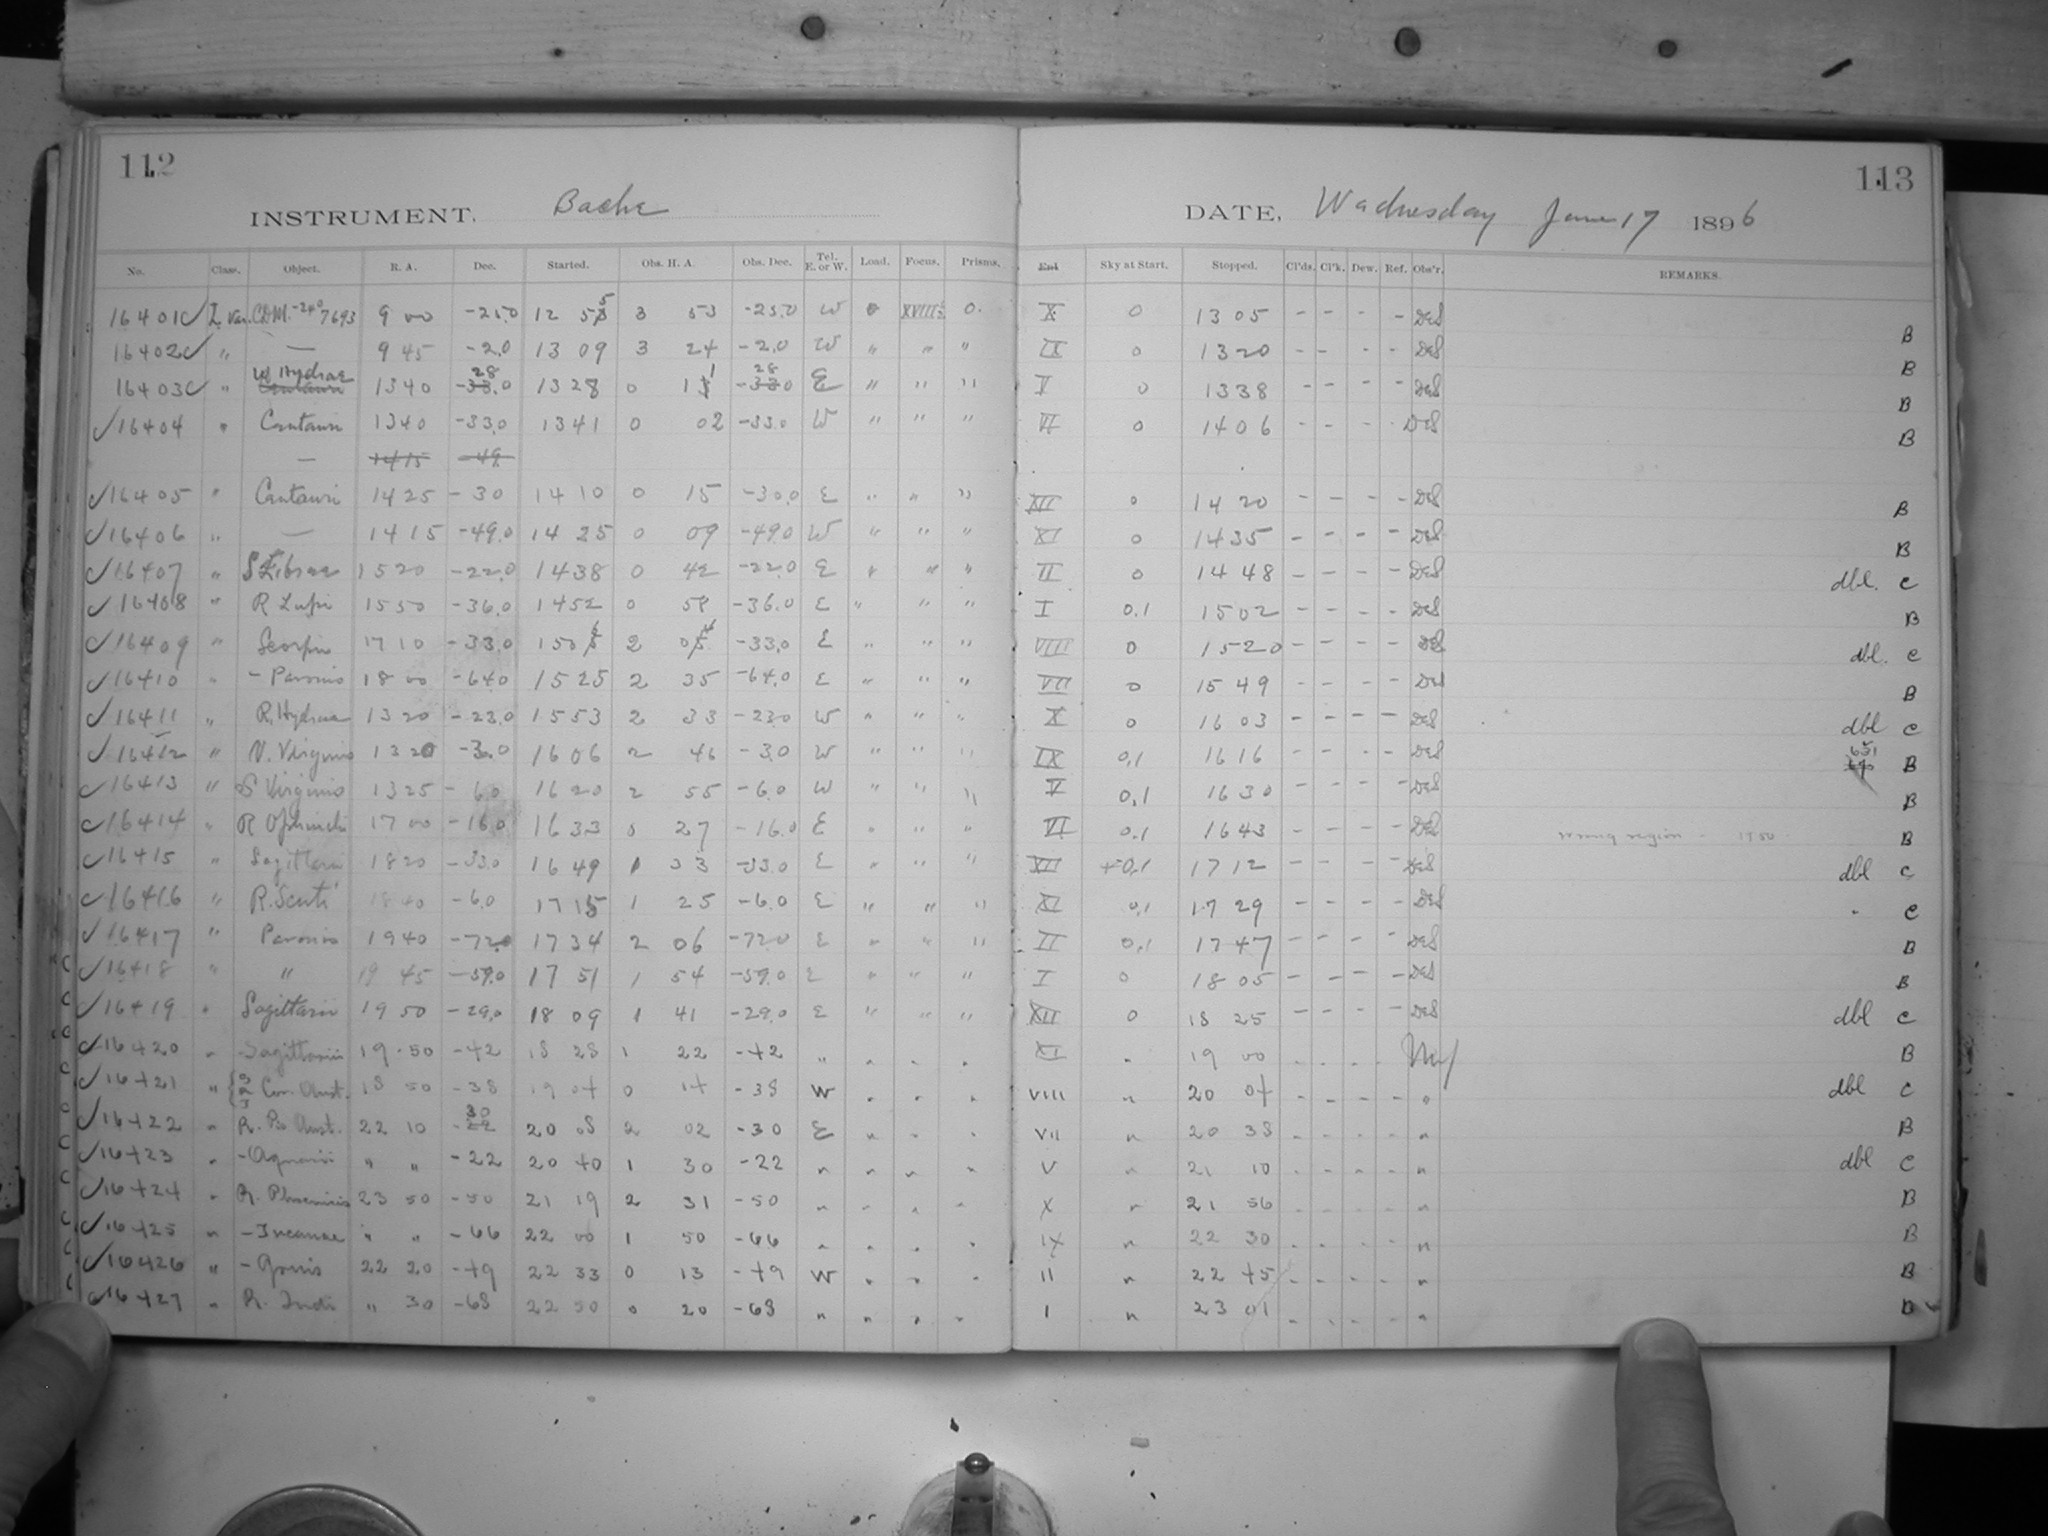 112
113
INSTRUMENT, Bache
DATE, Wednesday June 17 1896
No. Class. Object. R. A. Dec. Started. Obs. H. A. Obs. Dec. Tel. E. or W. Load. Focus. Prisms. Exd Sky at Start. Stopped. Cl'ds. Cl'k. Dew. Ref. Obs'r. REMARKS.
16401 C L. Var. C.DM. -24° 7693 9 00 -25.0 12 55 3 53 -25.0 W 0 XVIII 0. X 0 13 05 - - - - DES B
16402 C " — 9 45 -2.0 13 09 3 24 -2.0 W " " " IX 0 13 20 - - - - DES B
16403 C " W Hydrae Centauri 13 40 -28.0 13 28 0 11 -28.0 E " " " V 0 13 38 - - - - DES B
✓16404 " Centauri 13 40 -33.0 13 41 0 02 -33.0 W " " " VI 0 14 06 - - - - DES B
— 14 15 -49.
✓16405 " Centauri 14 25 -30 14 10 0 15 -30.0 E " " " XII 0 14 20 - - - - DES B
✓16406 " — 14 15 -49.0 14 25 0 09 -49.0 W " " " XI 0 14 35 - - - - DES B
✓16407 " S Librae 15 20 -22.0 14 38 0 42 -22.0 E " " " II 0 14 48 - - - - DES dbl. C
✓16408 " R Lupi 15 50 -36.0 14 52 0 58 -36.0 E " " " I 0.1 15 02 - - - - DES B
✓16409 " Scorpii 17 10 -33.0 15 06 2 04 -33.0 E " " " VIII 0 15 20 - - - - DES dbl. C
✓16410 " - Pavonis 18 00 -64.0 15 25 2 35 -64.0 E " " " VII 0 15 49 - - - - DES B
✓16411 " R. Hydrae 13 20 -23.0 15 53 2 33 -23.0 W " " " X 0 16 03 - - - - DES dbl C
✓16412 " V. Virginis 13 20 -3.0 16 06 2 46 -3.0 W " " " IX 0.1 16 16 - - - - DES B
✓16413 " S Virginis 13 25 -6.0 16 20 2 55 -6.0 W " " " V 0.1 16 30 - - - - DES B
✓16414 " R Ophiuchi 17 00 -16.0 16 33 0 27 -16.0 E " " " VI 0.1 16 43 - - - - DES wrong region - 1750. B
✓16415 " Sagittarii 18 20 -33.0 16 49 1 33 -33.0 E " " " XII +0.1 17 12 - - - - DES dbl C
✓16416 " R. Scuti 18 40 -6.0 17 15 1 25 -6.0 E " " " XI 0.1 17 29 - - - - DES C
✓16417 " Pavonis 19 40 -72.0 17 34 2 06 -72.0 E " " " II 0.1 17 47 - - - - DES B
✓16418 " " 19 45 -59.0 17 51 1 54 -59.0 E " " " I 0 18 05 - - - - DES B
✓16419 " Sagittarii 19 50 -29.0 18 09 1 41 -29.0 E " " " XII 0 18 25 - - - - DES dbl C
✓16420 " - Sagittarii 19 50 -42 18 28 1 22 -42 " " " " XI " 19 00 - - - - B
✓16421 " Cor. Aust. 18 50 -38 19 04 0 14 -38 W " " " VIII " 20 04 - - - - " dbl C
✓16422 " R. Ps Aust. 22 10 -30 20 08 2 02 -30 E " " " VII " 20 38 - - - - " B
✓16423 " - Aquarii " " -22 20 40 1 30 -22 " " " " V " 21 10 - - - - " dbl C
✓16424 " R. Phoenicis 23 50 -50 21 19 2 31 -50 " " " " X " 21 56 - - - - " B
✓16425 " - Tucanae " " -66 22 00 1 50 -66 " " " " IX " 22 30 - - - - " B
✓16426 " - Gruis 22 20 -49 22 33 0 13 -49 W " " " II " 22 45 - - - - " B
✓16427 " R. Indi " 30 -68 22 50 0 20 -68 " " " " I " 23 01 - - - - " B